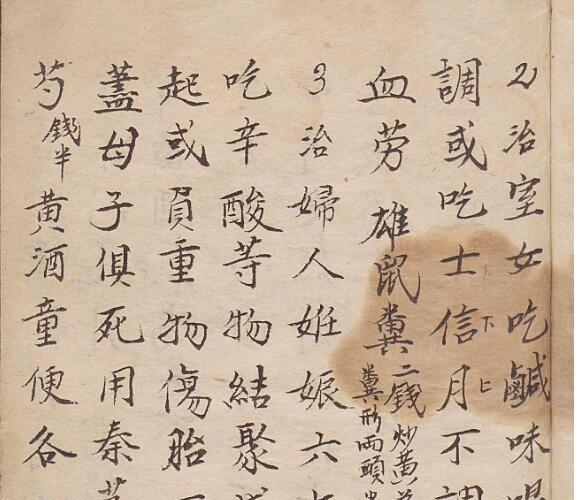 2治室女吃鹹味
調或吃士信下月上不
血劳 雄鼠糞二錢炒黄糞形兩頭
3治婦人姙娠六
吃辛酸等物結聚
起或負重物傷胎
蓋母子俱死用秦
芍錢半黄酒童便各